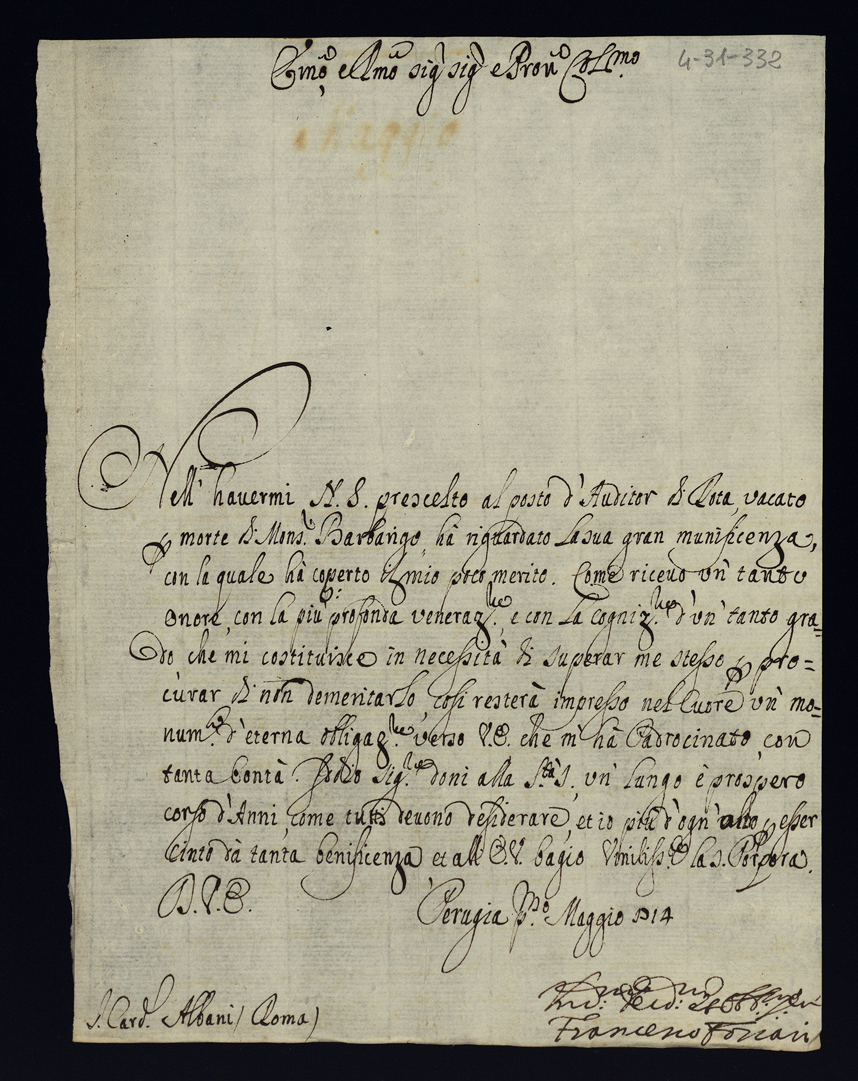 Em̃o e Rm̃o Sig.r Sig.r e Pron̄ Col.mo
4-31-332
Maggio
Nell' havermi N. S. prescelto al posto d'Auditor di Rota, vacato
p morte di Mons.r Barbarigo hà riguardato la sua gran munificenza,
con la quale hà coperto il mio poco merito. Come ricevo un' tanto
onore, con la più profonda veneraz.ne, e con la Cogniz.ne d'un' tanto gra=
do che mi costituisce in necessità di superar me stesso p pro=
curar di non demeritarlo, così resterà impresso nel Cuore un' mo=
num.to d'eterna obligaz.ne verso V.E. che m' hà Padrocinato con
tanta bontà. Iddio Sig.re doni alla S.tà S. un' lungo è prospero
corso d'Anni, come tutti devono desiderare, et io più d'ogn' altro p esser
cinto dà tanta benificenza et all' E.V. bagio Umiliss.te la s. Porpora.
D. V. E.
Perugia p.mo Maggio 1714
S. Card.l Albani (Roma)
Francesco